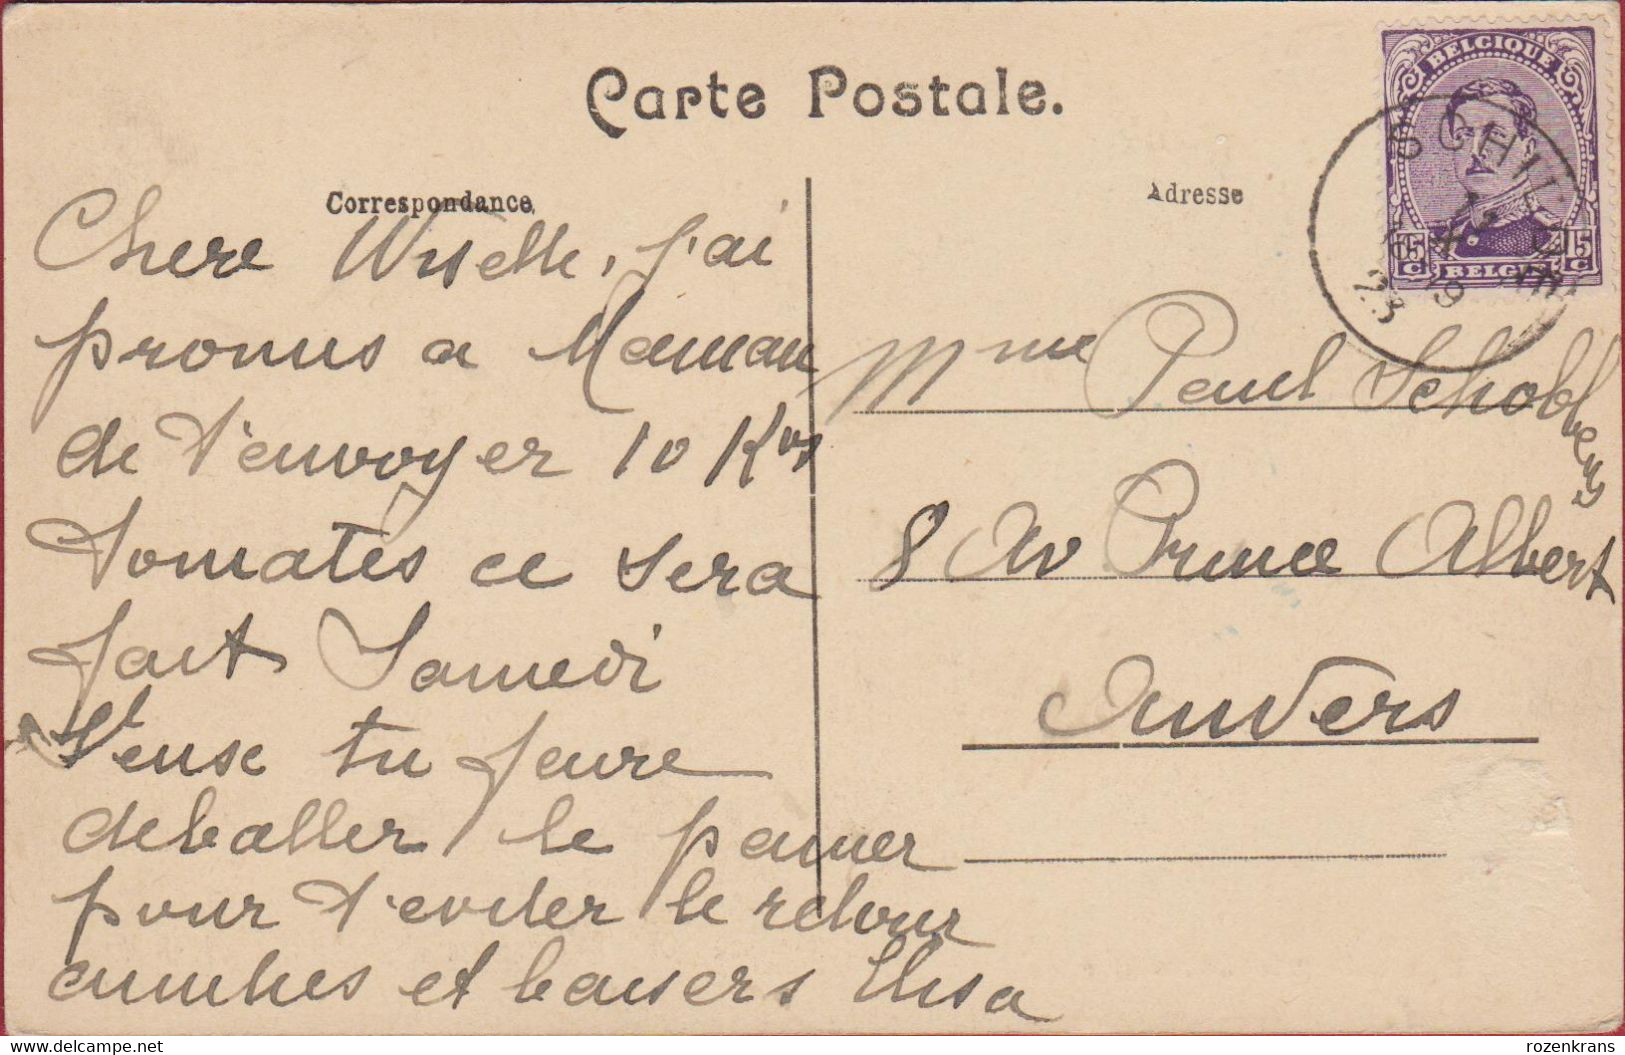 Carte Postale.
BELGIQUE
15 C
15 C
BELGIË
SCHILDE
Correspondance
Adresse
Chere j'ai
promis a Maman
de t'envoyer 10 Kos
Tomates ce sera
fait Samedi
Veuse tu faire
deballer le panier
pour t'eviter le retour
amities et baisers Elisa
Mme Paul Schobbens
8 Av Prince Albert
Anvers
rozenkrans
delcampe.net